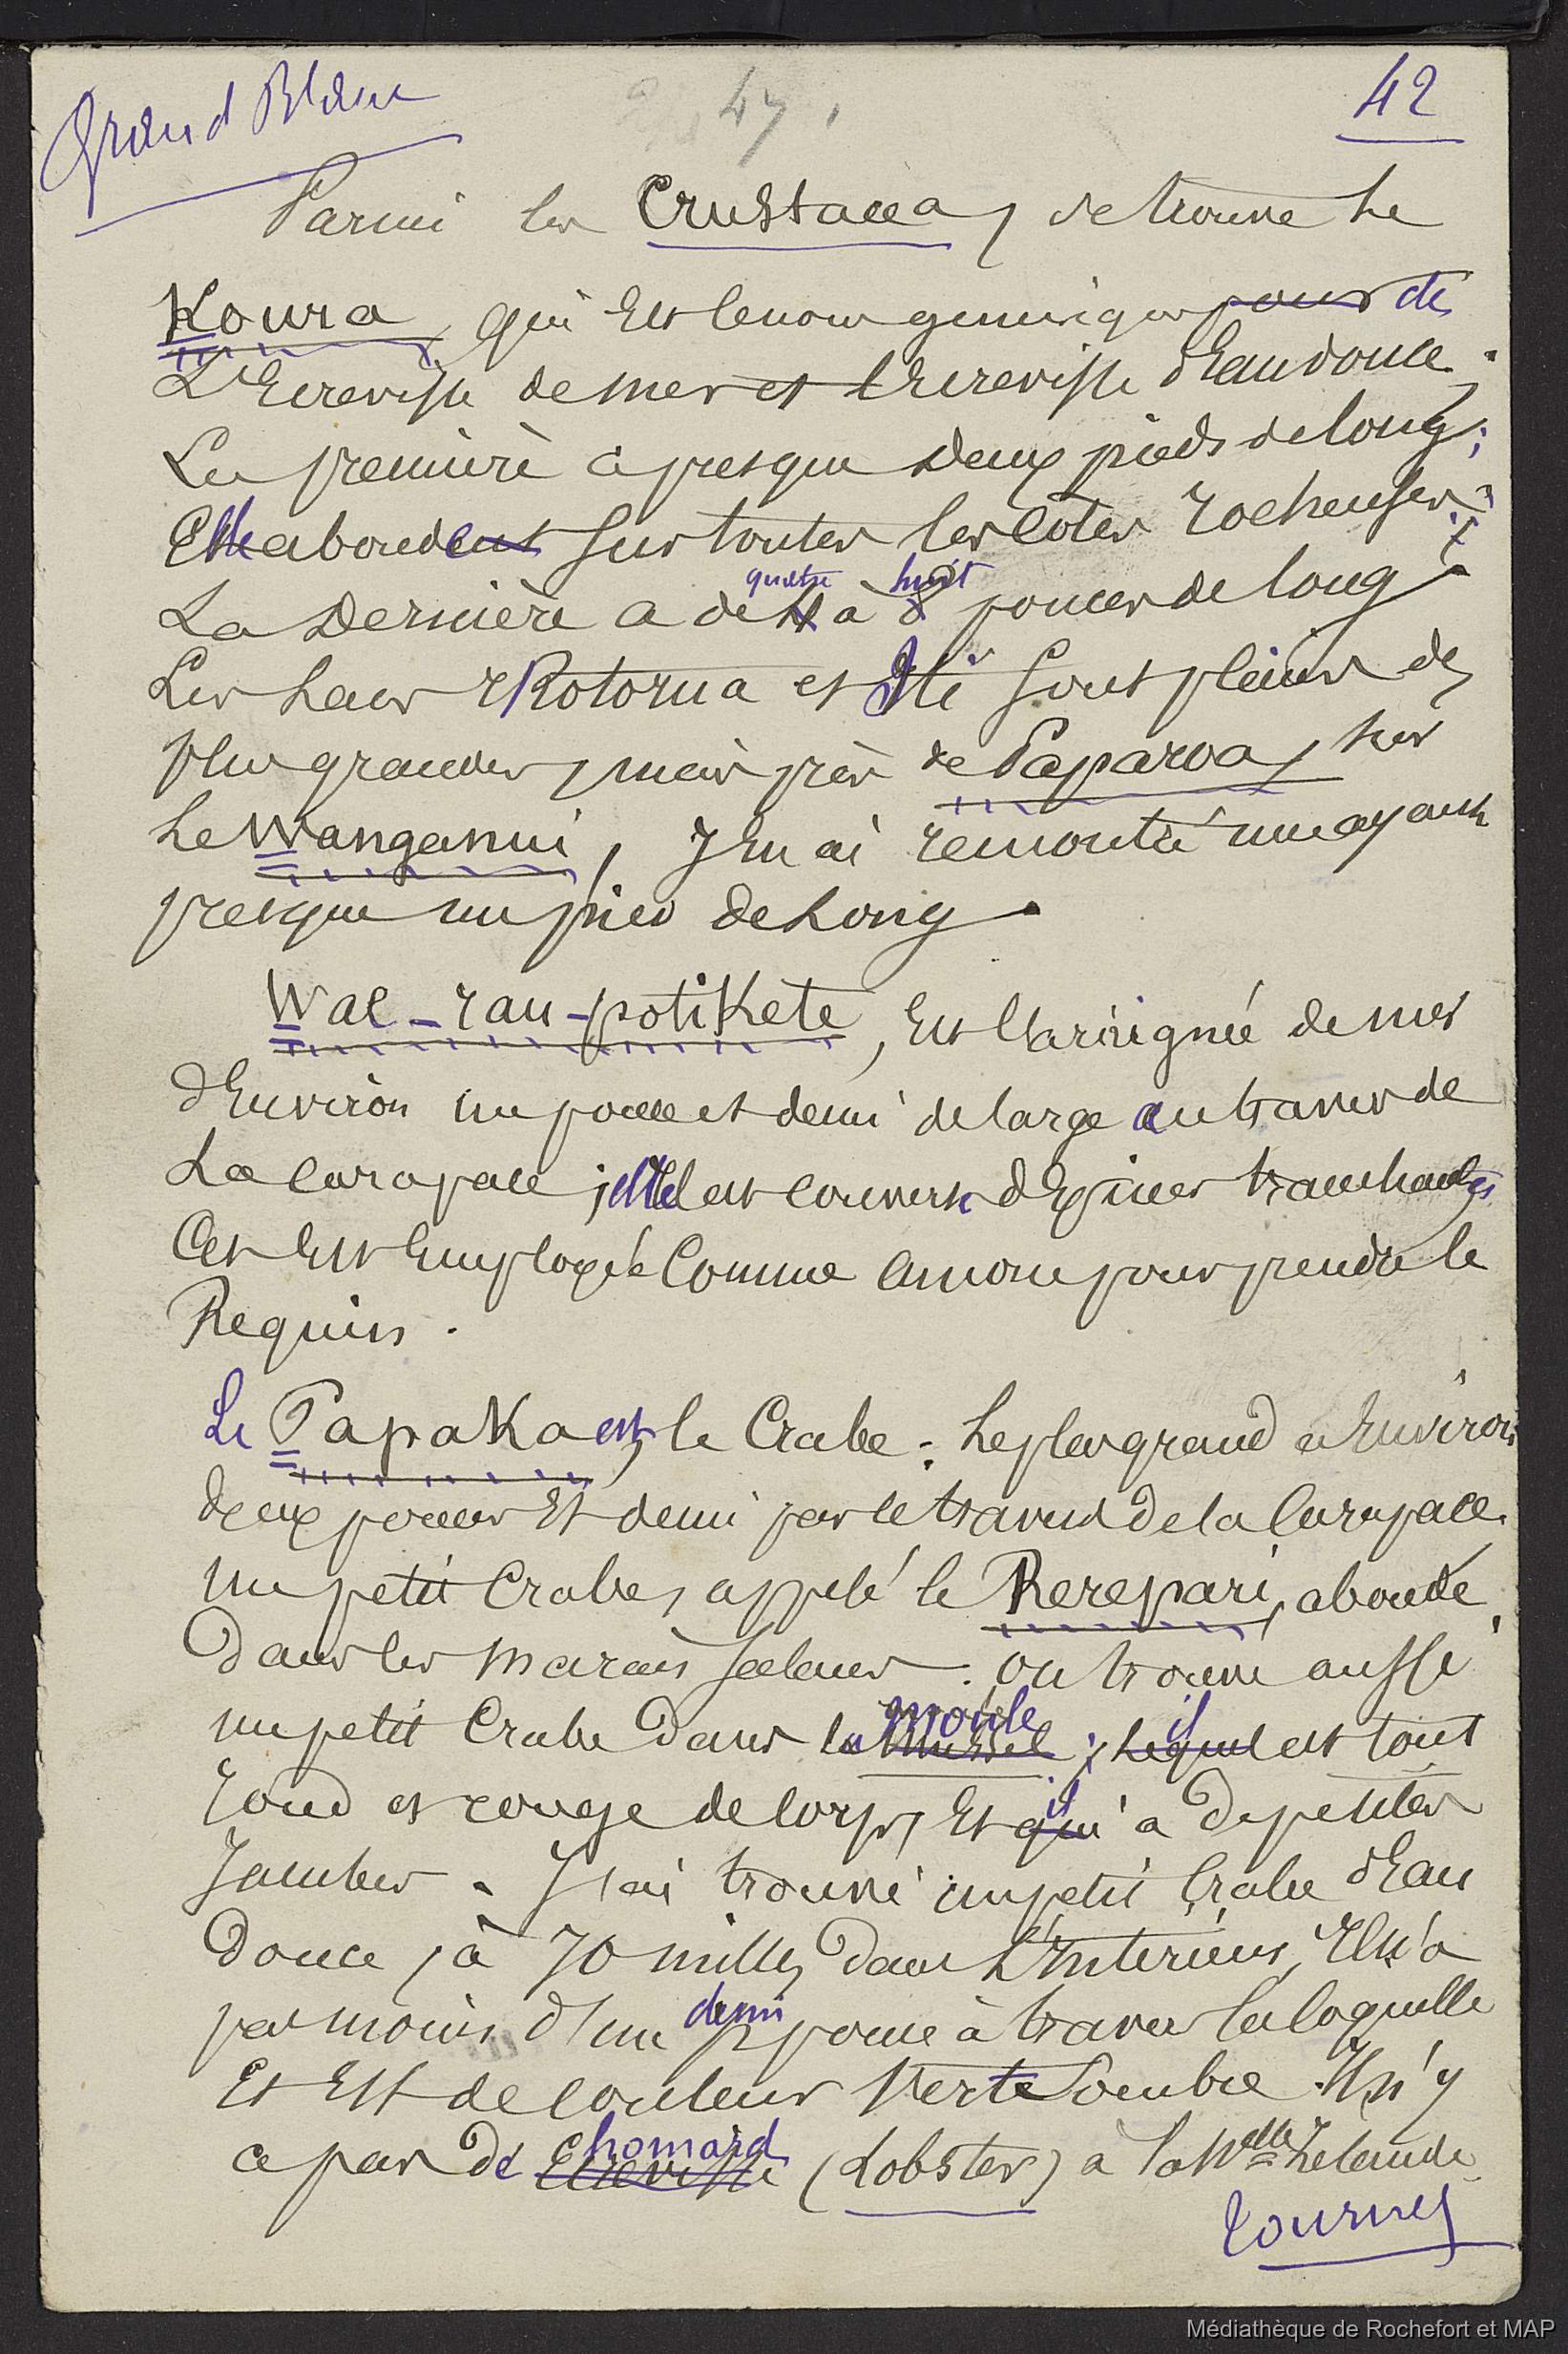 Grand Blanc
47.
42
Parmi les Crustacea, se trouve le
Koura, qui Est le nom generique pour de
L'Ecrevisse de mer et l'Ecrevisse d'Eau douce.
La première a presque deux pieds de long;
Elle abondent sur toutes les côtes rocheuses;
quatre huit
La Dernière a de 4 à 8 pouces de long.
Les Lacs Rotorua et Iti sont pleins de
plus grandes, mais près de Paparoa, sur
Le Wanganui, J'En ai remontré une ayant
presque un pied de Long.
Wae-rau-potikete, Est l'araignée de mer
d'Environ un pouce et demi de large au travers de
La carapace; elle est couverte d'Epines tranchantes
Cet Est Employée Comme amorce pour prendre le
Requin.
Le Papaka est le Crabe. Le plus grand a Environ
deux pouces Et demi par le travers de la Carapace.
Un petit Crabe, appelé le Rerepari, abonde
Dans les marais salans. On trouve aussi
moule il
un petit Crabe dans la Mussel; Lequel est tout
il
rond et rouge de corps, Et qui a de petites
Jambes. J'ai trouvé un petit Crabe d'Eau
Douce, à 70 milles Dans L'Intérieur, Il n'a
demi
pas moins d'un ½ pouce à travers la coquille
Et Est de couleur Verte Sombre. Il n'y
homard
a pas de Ecrevisse (Lobster) à la Nelle Zelande
Tournez
Médiathèque de Rochefort et MAP